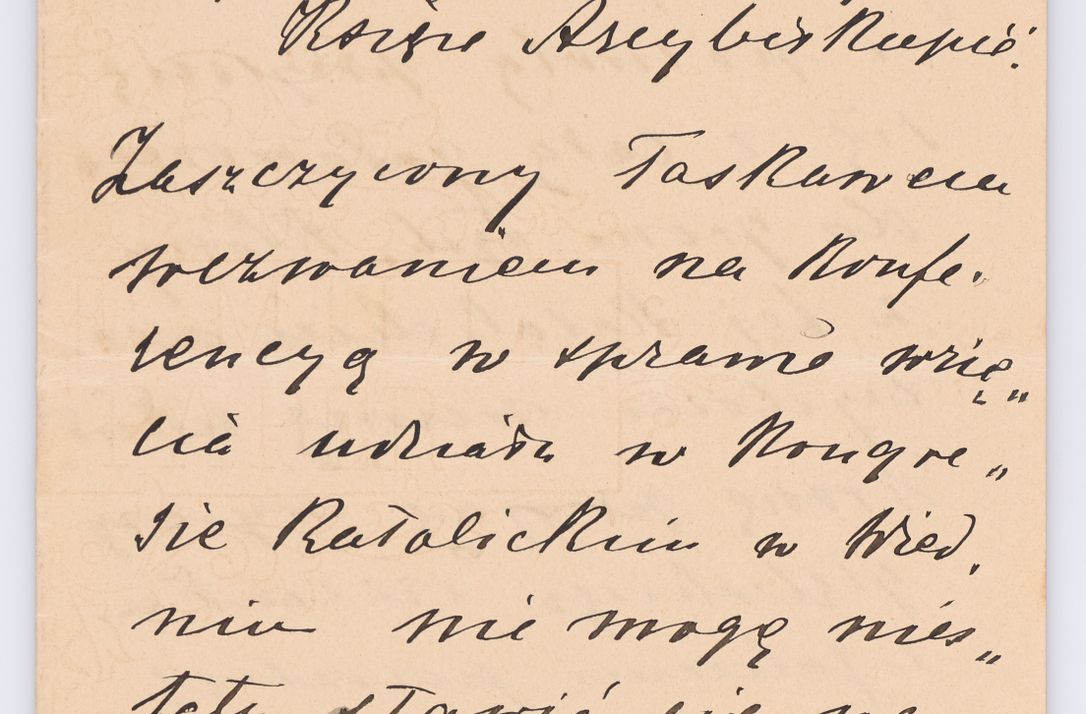 Księże Arcybiskupie!
Zaszczycony Łaskawem
wezwaniem na Konfe-
rencyą w sprawie wzię„
cia udziału w Kongre„
sie Katolickim w Wied,
niu nie mogę nies„
tety stawić się na